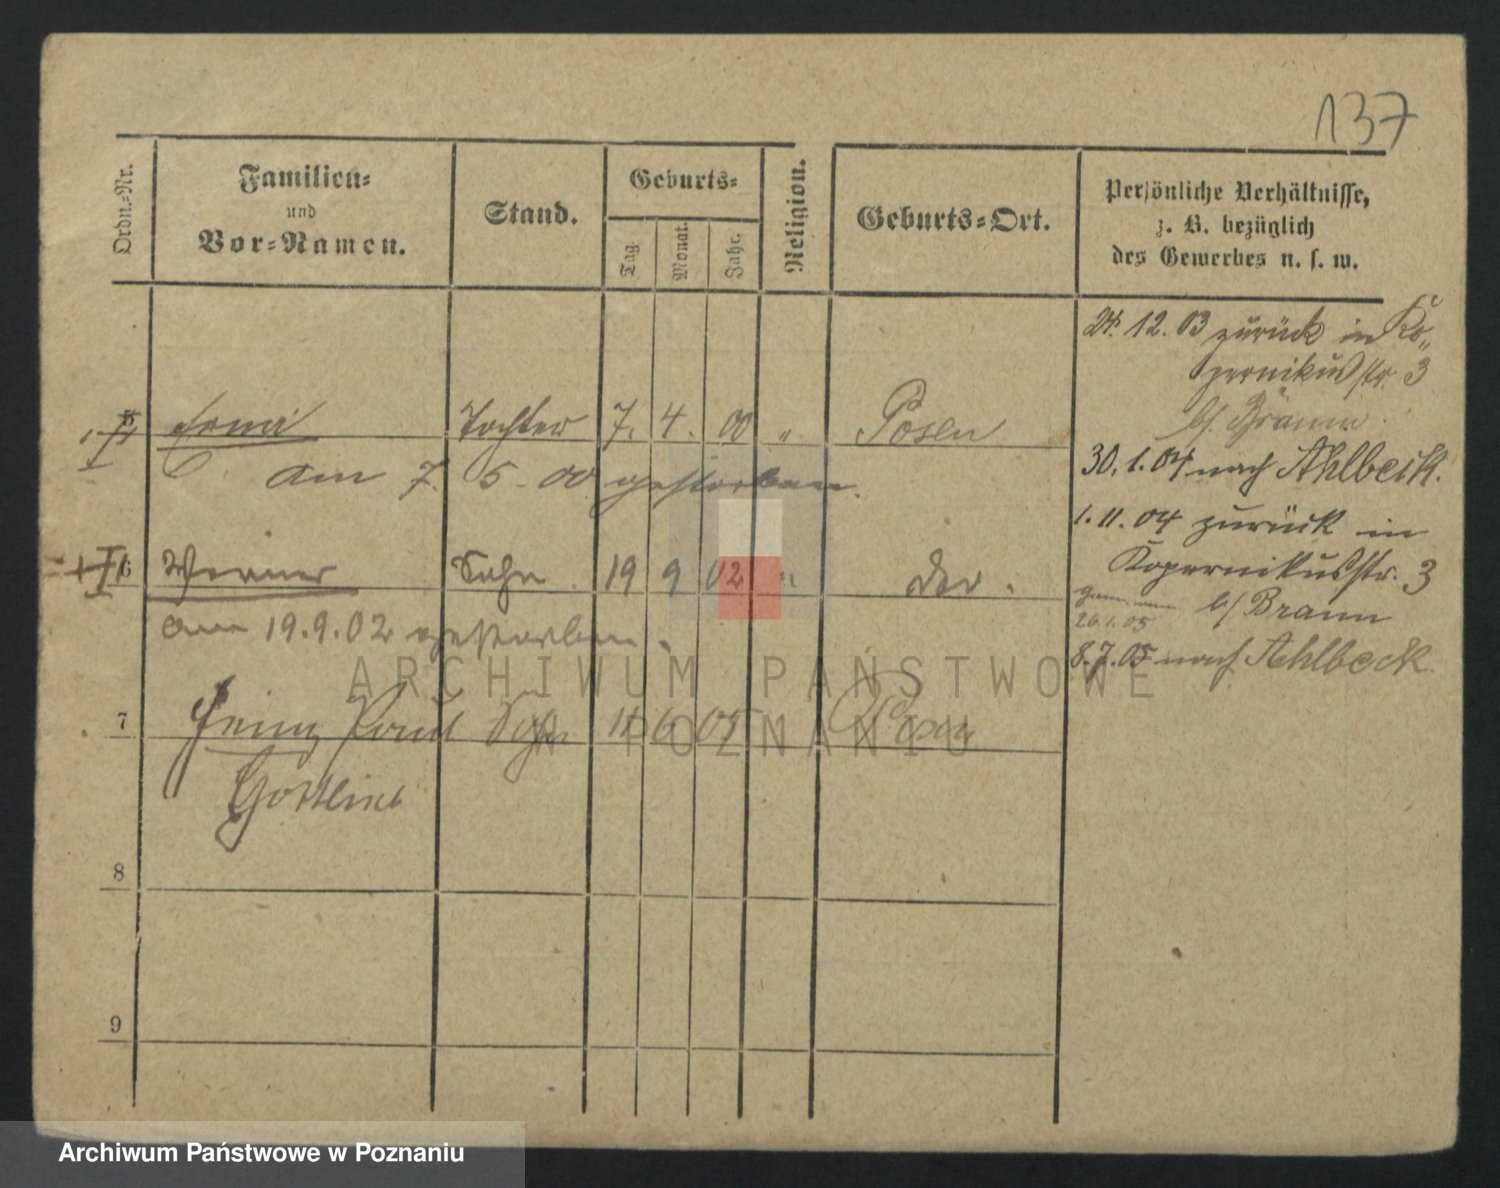 137
Ordn.-Nr.
Familien-
und
Vor-Namen.
Stand.
Geburts-
Tag.
Monat.
Jahr.
Religion.
Geburts-Ort.
Persönliche Verhältnisse,
z. B. bezüglich
des Gewerbes u. s. w.
24. 12. 03 zurück in Ko-
pernikusstr. 3
b/ Braun
5 Erna Tochter 7. 4. 00 " Posen
am 7. 5. 00 gestorben.
30. 1. 04 nach Ahlbeck.
1. 11. 04 zurück in
Kopernikusstr. 3
b/ Braun
26.1.05
8. 7. 05 nach Ahlbeck.
6 Werner Sohn 19 9 02 " der.
am 19. 9. 02 gestorben.
7 Heinz Paul Sohn 11 6 05 Posen
Gottlieb
8
9
ARCHIWUM PAŃSTWOWE
W POZNANIU
Archiwum Państwowe w Poznaniu